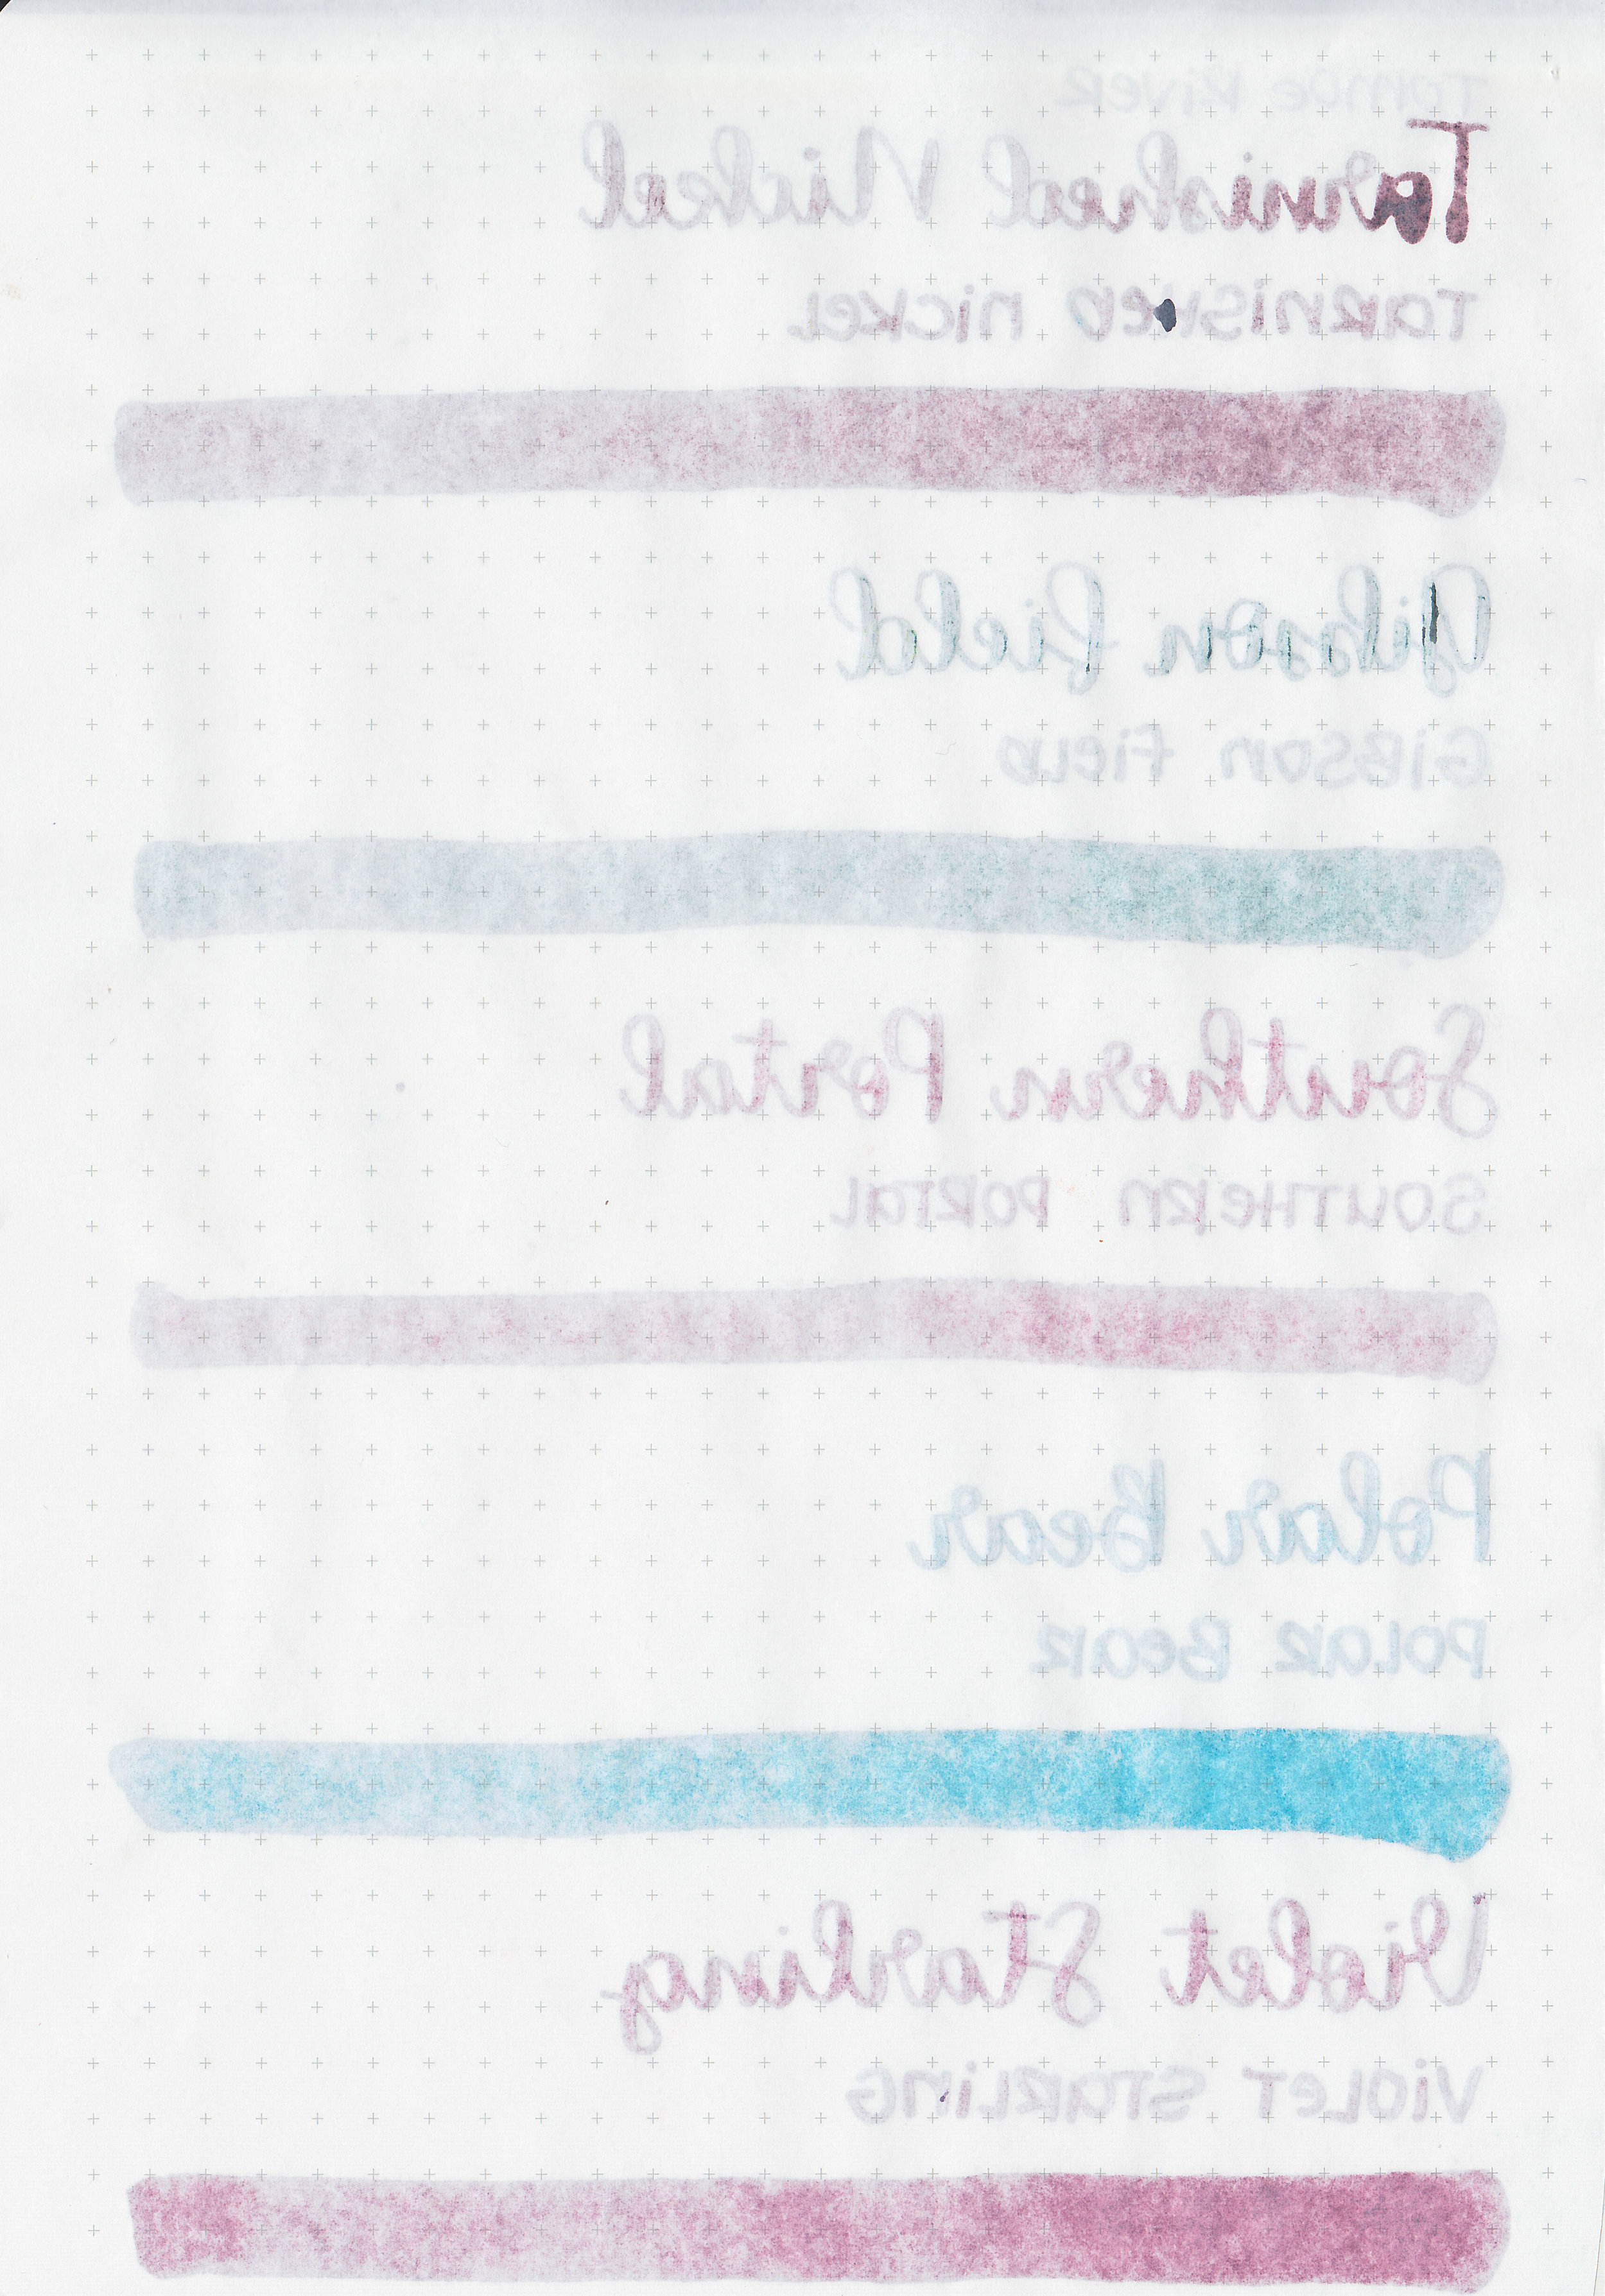 Tomoe River
Tarnished Nickel
Tarnished Nickel
Gibson Field
Gibson Field
Southern Portal
Southern Portal
Polar Bear
Polar Bear
Violet Starling
Violet Starling